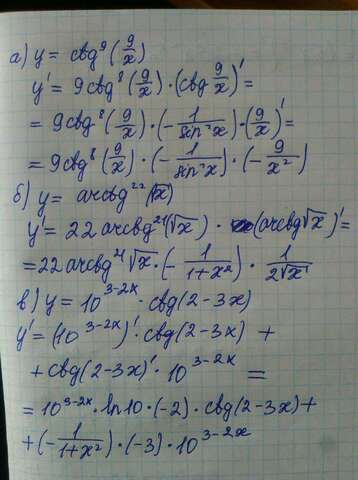 а) y = ctg⁹(9/x)
y' = 9ctg⁸(9/x)·(ctg 9/x)' =
= 9ctg⁸(9/x)·(-1/sin²x)·(9/x)' =
= 9ctg⁸(9/x)·(-1/sin²x)·(-9/x²)
б) y = arcctg²²(√x)
y' = 22arcctg²¹(√x)·(arcctg√x)' =
= 22arcctg²¹√x·(-1/(1+x²))·1/(2√x)
в) y = 10³⁻²ˣ·ctg(2-3x)
y' = (10³⁻²ˣ)'·ctg(2-3x) +
+ ctg(2-3x)'·10³⁻²ˣ =
= 10³⁻²ˣ·ln10·(-2)·ctg(2-3x)+
+(-1/(1+x²))·(-3)·10³⁻²ˣ